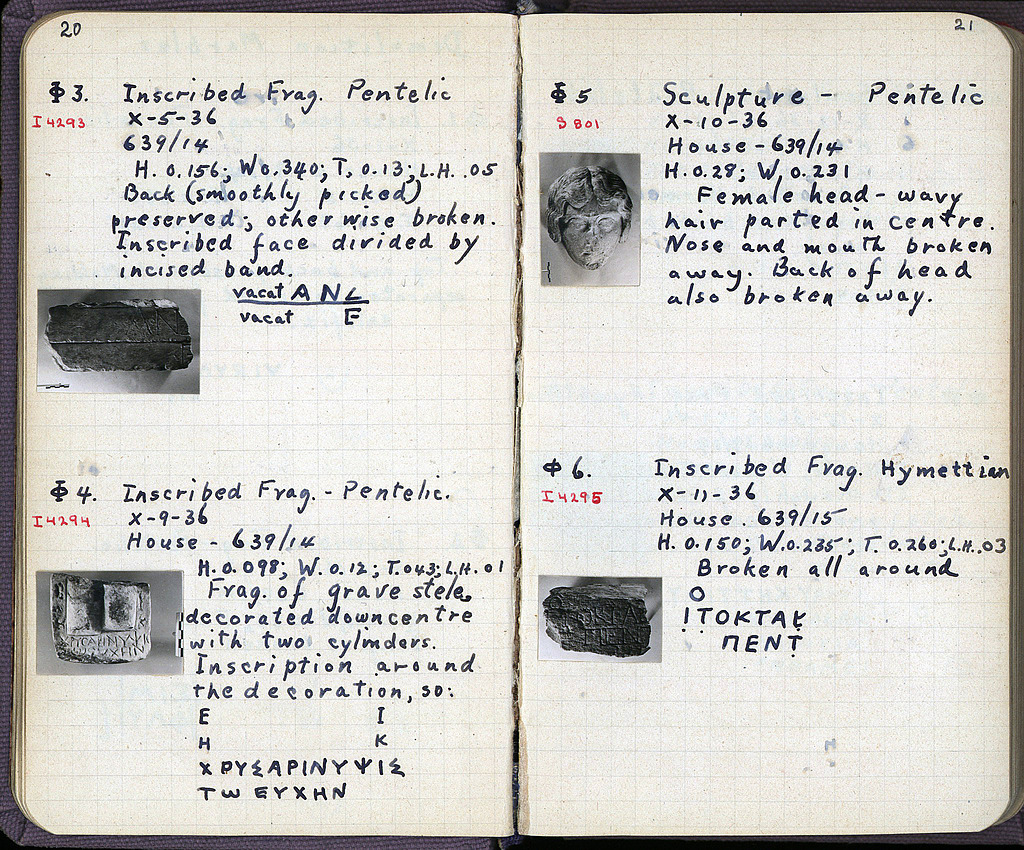 20
Φ 3. Inscribed Frag. Pentelic
I 4293 X-5-36
639/14
H. 0.156; W 0.340; T. 0.13; L.H. .05
Back (smoothly picked)
preserved; otherwise broken.
Inscribed face divided by
incised band.
vacat Α Ν
vacat Ε
Φ 4. Inscribed Frag. - Pentelic.
I 4294 X-9-36
House - 639/14
H. 0.098; W. 0.12; T. 043; L.H. 01
Frag. of grave stele,
decorated down centre
with two cylinders.
Inscription around
the decoration, so:
Ε Ι
Η Κ
ΧΡΥΣΑΡΙΝΥΨΙΣ
Τω ΕΥΧΗΝ
21
Φ 5 Sculpture - Pentelic
S 801 X-10-36
House - 639/14
H. 0.28; W. 0.231
Female head - wavy
hair parted in centre.
Nose and mouth broken
away. Back of head
also broken away.
Φ 6. Inscribed Frag. Hymettian
I 4295 X-11-36
House. 639/15
H. 0.150; W. 0.235; T. 0.260; L.H. .03
Broken all around
Ο
Ι̣ΤΟΚΤΑΚ̣
ΠΕΝΤ̣